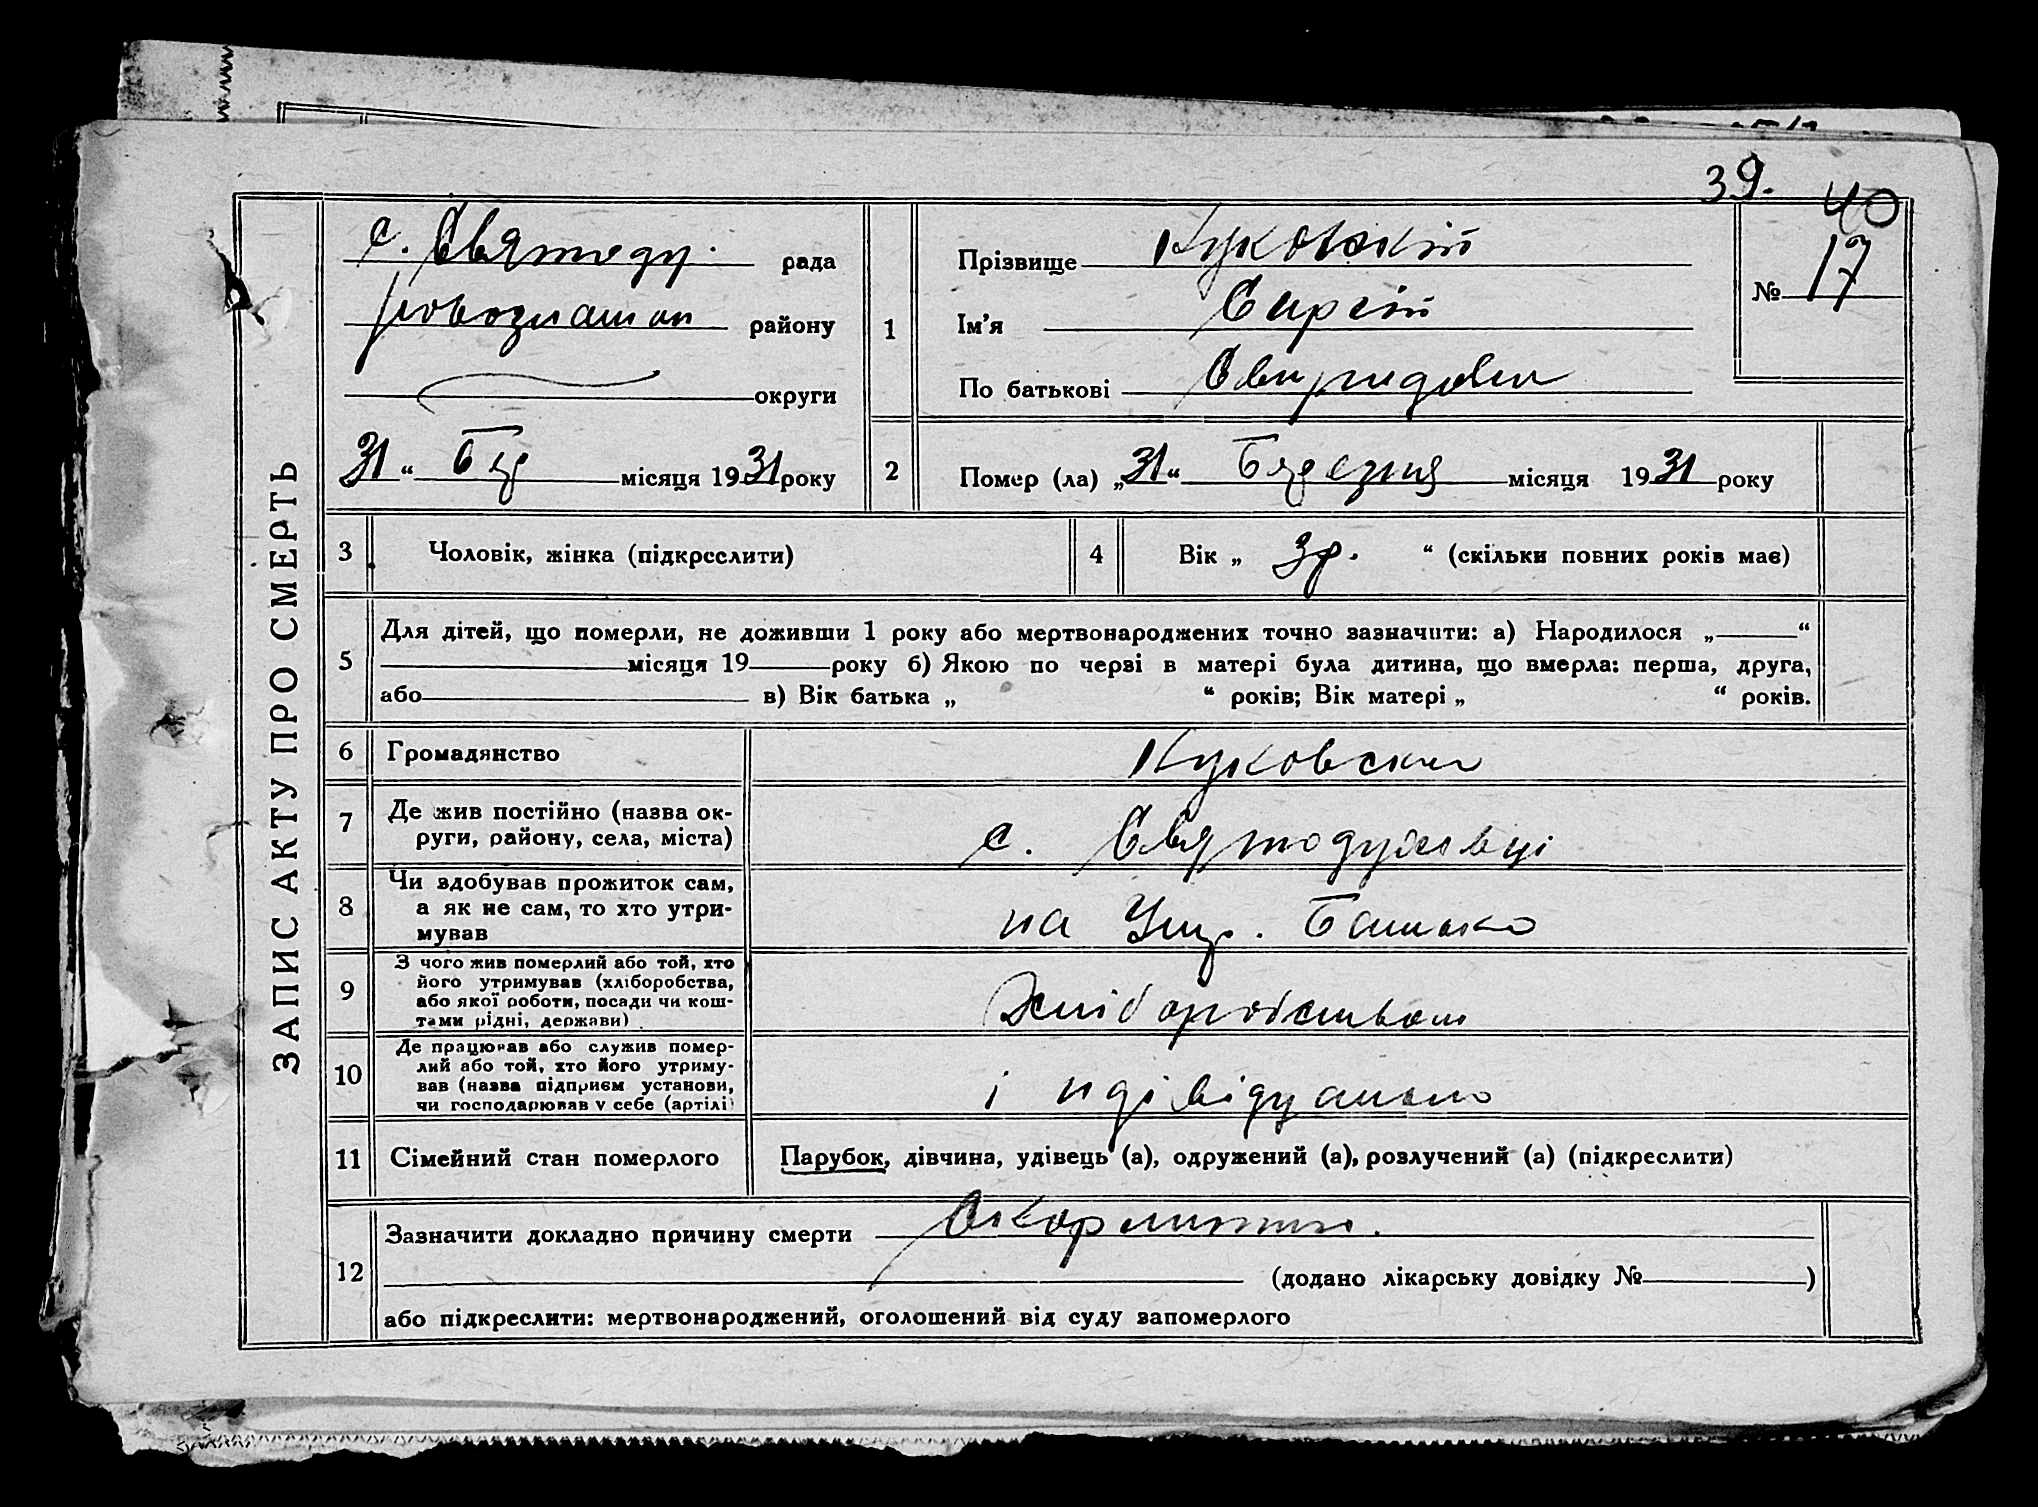 39. 40
ЗАПИС АКТУ ПРО СМЕРТЬ
с. Святоду. рада
району
округи
31 “ Бер місяця 1931 року
1
Прізвище Куковский
Ім’я Сиргій
По батькові Свиридови
№ 17
2
Помер (ла) „31“ Березня місяця 1931 року
3 Чоловік, жінка (підкреслити)
4 Вік „ 3 р. “ (скільки повних років має)
5
Для дітей, що померли, не доживши 1 року або мертвонароджених точно зазначити: а) Народилося „ “
місяця 19 року б) Якою по черзі в матері була дитина, що вмерла: перша, друга,
або в) Вік батька „ “ років; Вік матері „ “ років.
6 Громадянство Куковский
7 Де жив постійно (назва ок-
руги, району, села, міста)
с. Святодухівці
8 Чи здобував прожиток сам,
а як не сам, то хто утри-
мував
на Утр. Батька
9 З чого жив померлий або той, хто
його утримував (хліборобства,
або якої роботи, посади чи кош-
тами рідні, держави)
Хліборобством
10 Де працював або служив помер-
лий або той, хто його утриму-
вав (назва підприєм установи,
чи господарював у себе (артілі)
індівідуально
11 Сімейний стан померлого Парубок, дівчина, удівець (а), одружений (а), розлучений (а) (підкреслити)
12
Зазначити докладно причину смерти
(додано лікарську довідку № )
або підкреслити: мертвонароджений, оголошений від суду запомерлого